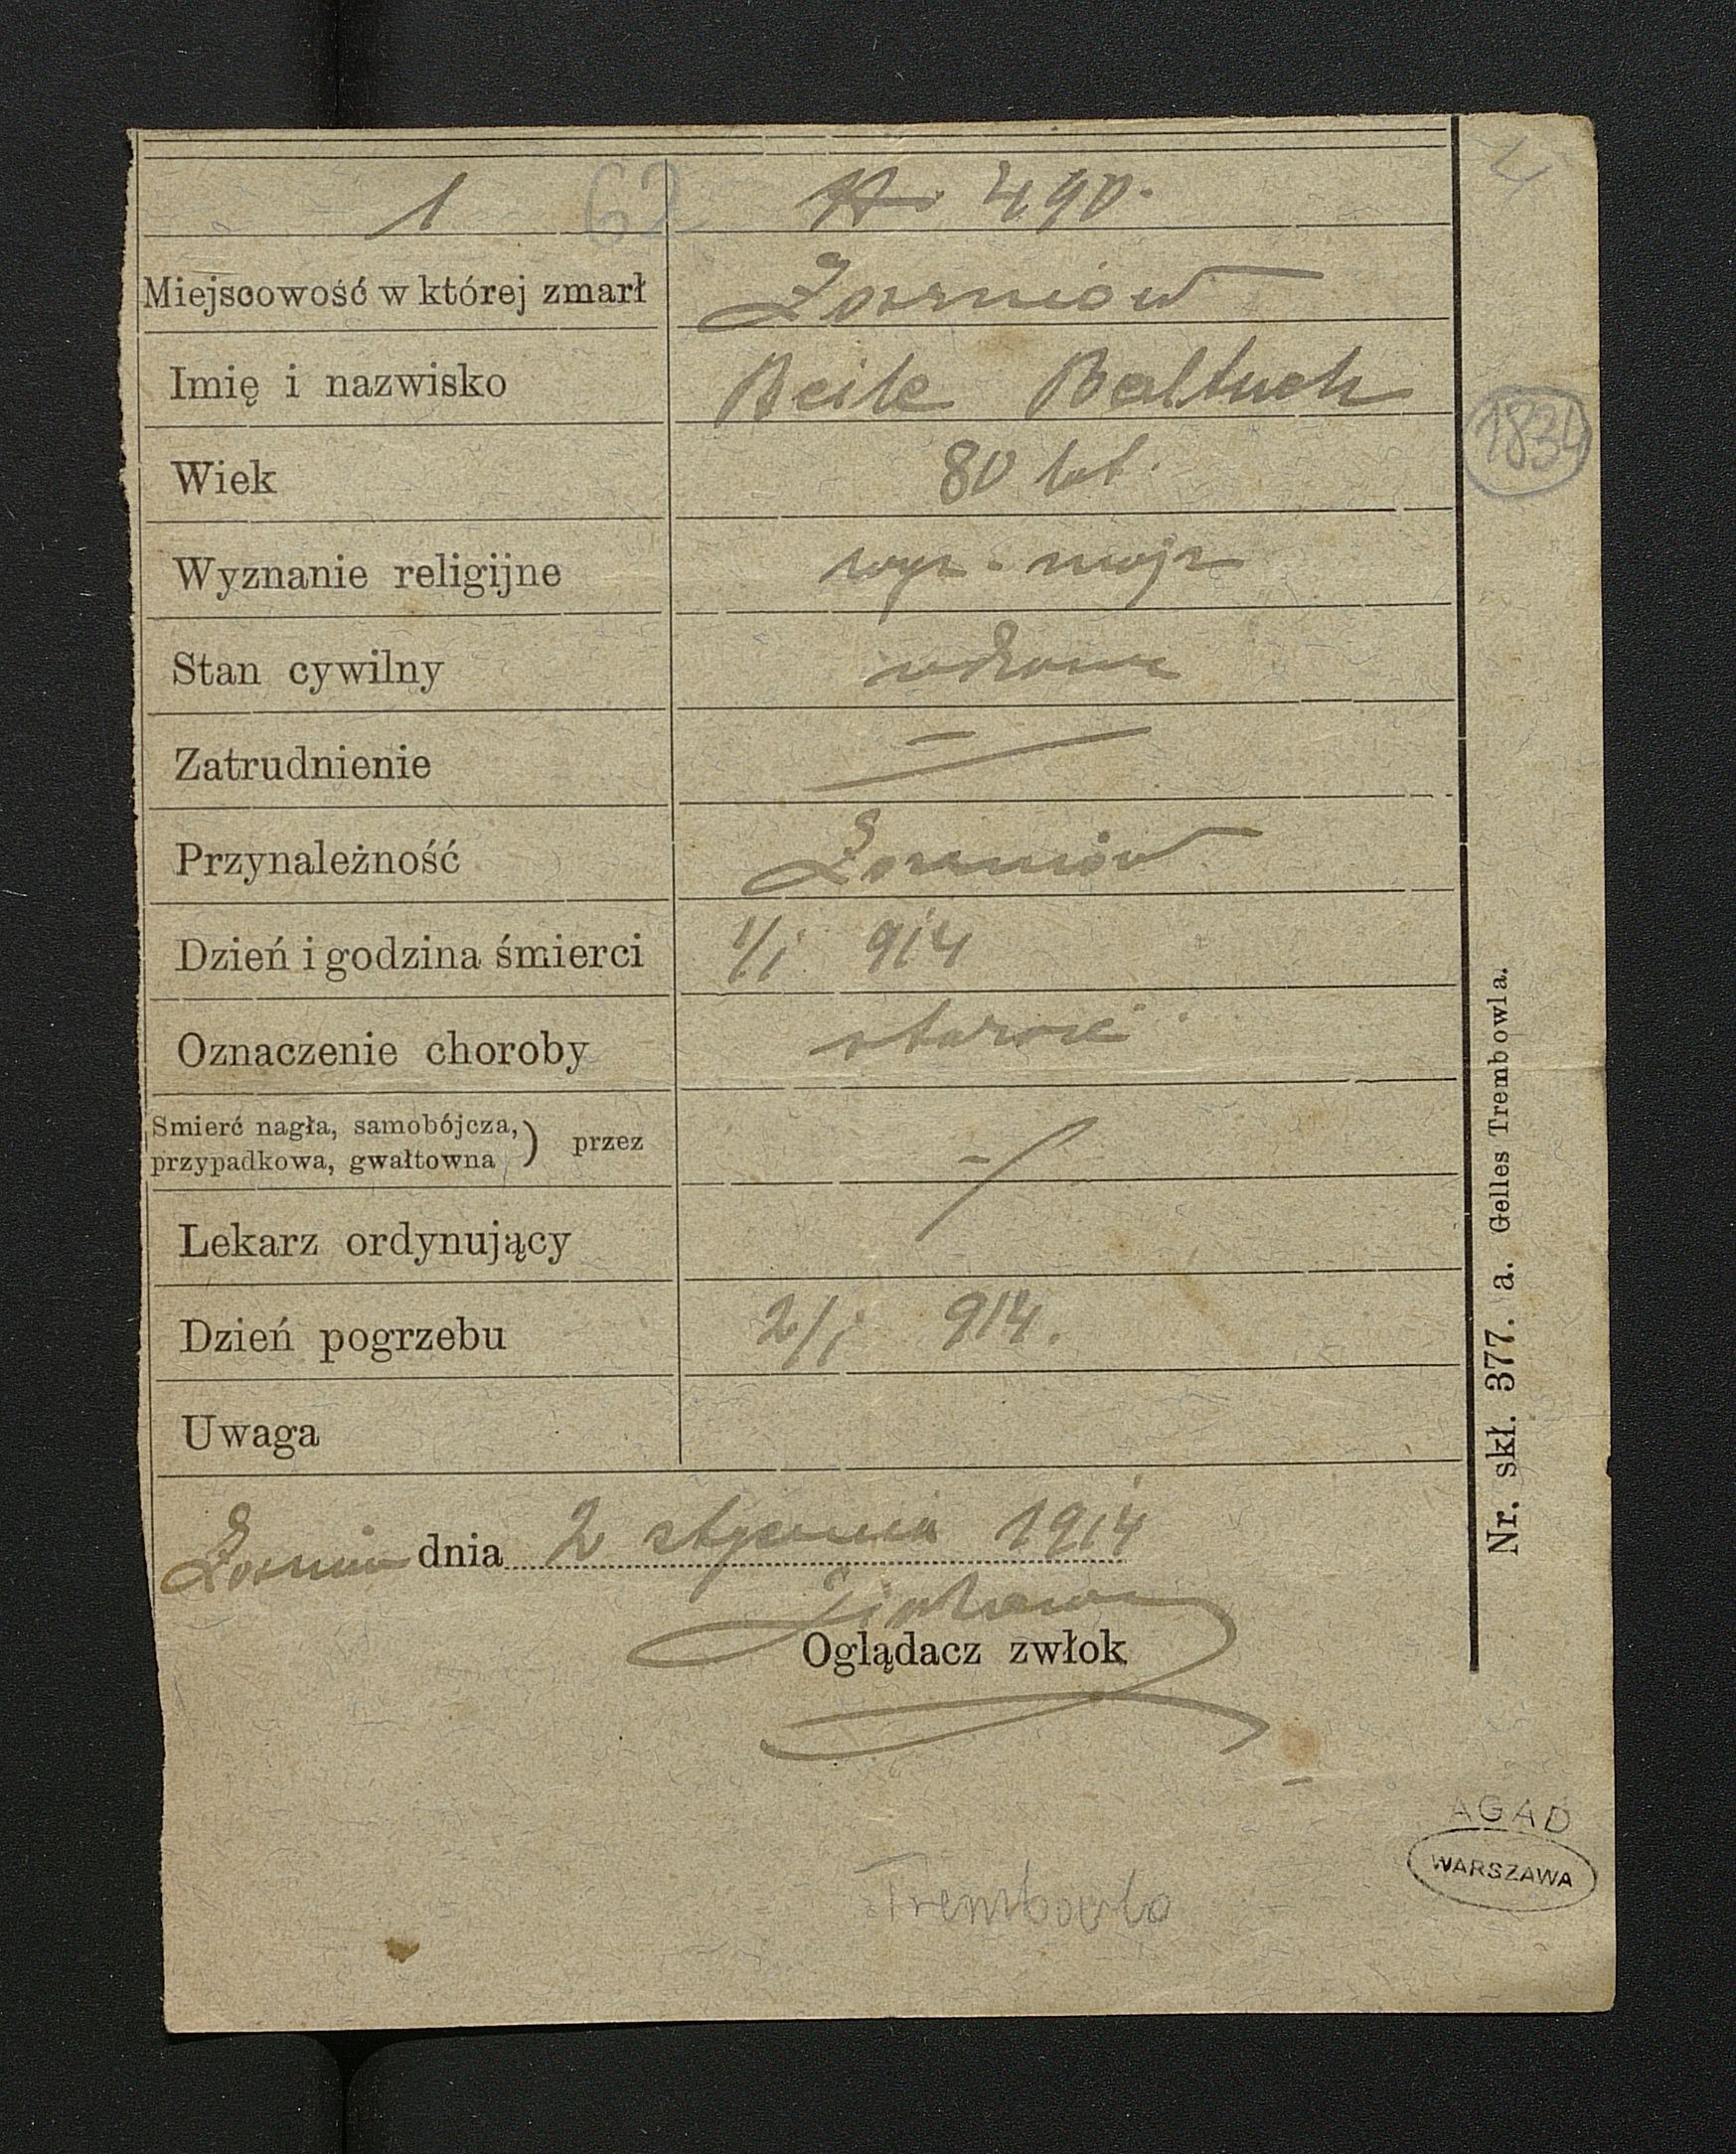 1 62 490.
4
Miejscowość w której zmarł Łoszniów
Imię i nazwisko Beile Baltuch
1834
Wiek 80 lat.
Wyznanie religijne wyz. mojż
Stan cywilny wdowa
Zatrudnienie —
Przynależność Łoszniów
Dzień i godzina śmierci 1/1 914
Oznaczenie choroby starość
Smierć nagła, samobójcza,
przypadkowa, gwałtowna ) przez —
Lekarz ordynujący
Dzień pogrzebu 2/1 914.
Uwaga
dnia 2 stycznia 1914
Oglądacz zwłok
Nr. skł. 377. a. Gelles Trembowla.
AGAD
WARSZAWA
Trembowla